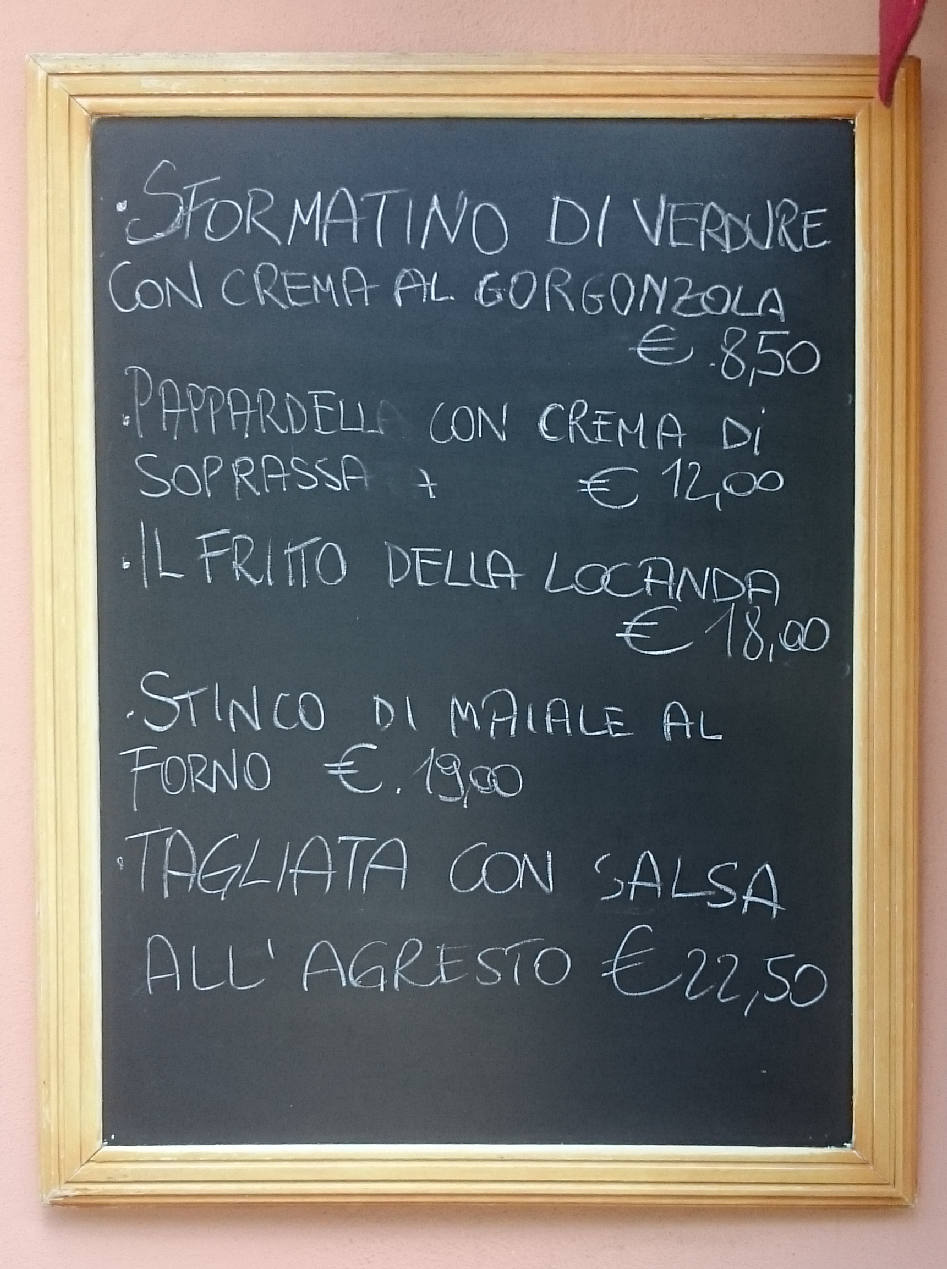 ·SFORMATINO DI VERDURE
CON CREMA AL GORGONZOLA
€ .8,50
·PAPPARDELLA CON CREMA Di
SOPRASSA + € 12,00
·IL FRITTO DELLA LOCANDA
€ 18,00
·STINCO DI MAIALE AL
FORNO €.19,00
·TAGLIATA CON SALSA
ALL'AGRESTO €22,50